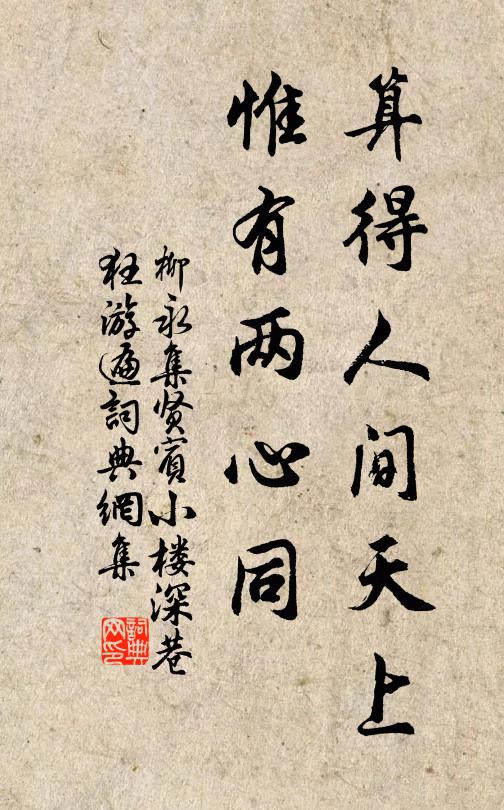 算得人间天上
惟有两心同
柳永集贤宾小楼深巷
狂游遍詞典網集
詞典
网印